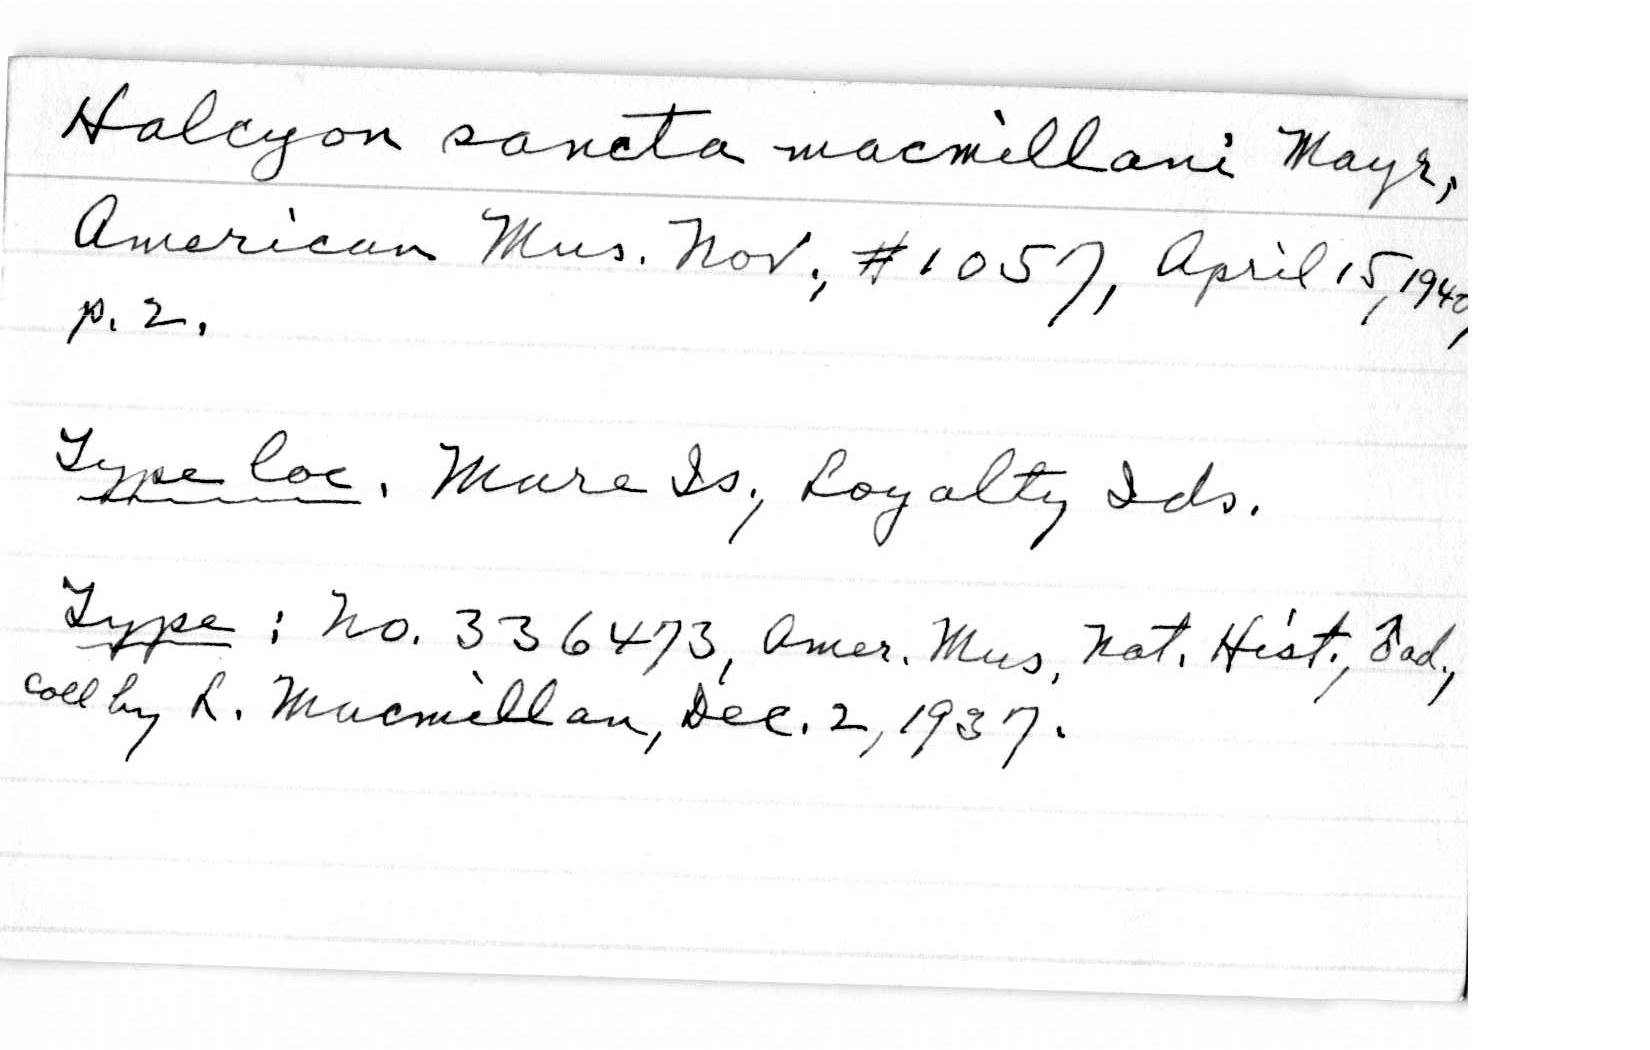 Halcyon sancta macmillani Mayr,
American Mus. Nov., #1057, April 15, 1940,
p. 2.
Type loc. Mare Is., Loyalty Ids.
Type : No. 336473, Amer. Mus. Nat. Hist., ♂ad.,
coll by L. Macmillan, Dec. 2, 1937.